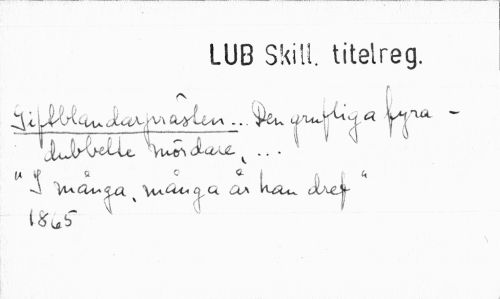 LUB Skill. titelreg.
Giftblandarprästen... Den grufliga fyra-
dubbelte mördare, ...
"I många, många år han dref"
1865